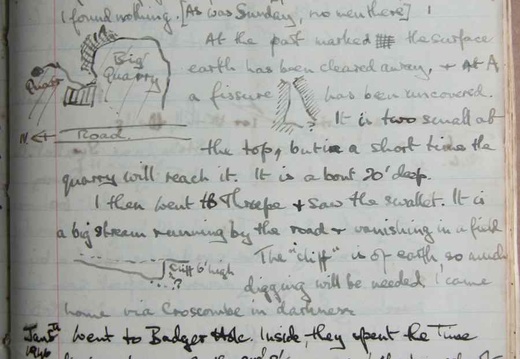 I found nothing. [As was Sunday, no men there]
At the part marked the surface
earth has been cleared away, + at A
a fissure has been uncovered.
It is two small at
the top, but in a short time the
quarry will reach it. It is about 20' deep.
I then went to Thrupe + saw the swallet. It is
a big stream running by the road + vanishing in a field
The "cliff" is of earth so much
digging will be needed. I came
home via Croscombe in darkness
A
Big
Quarry
Quarry
N. ← Road
?
cliff 6' high
?
Jan
1946
Went to Badger Hole. Inside, they spent the time